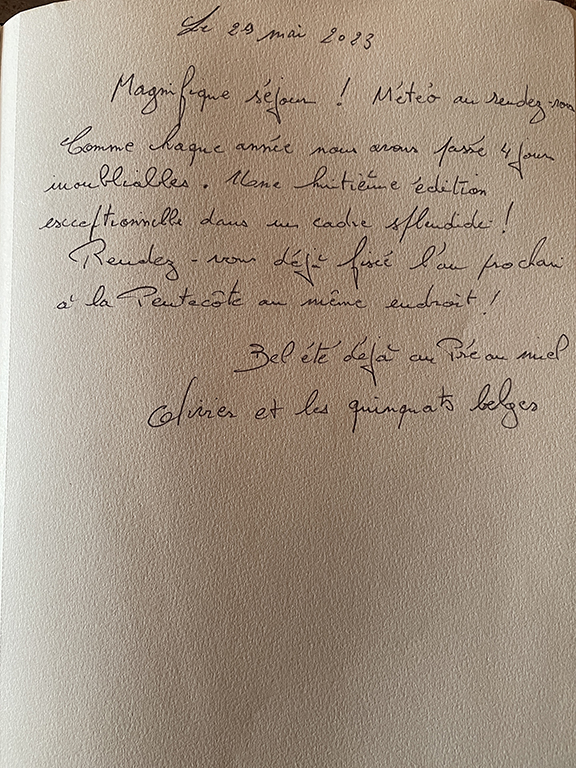 Le 29 mai 2023
Magnifique séjour ! Météo au rendez-vous
Comme chaque année nous avons passé 4 jours
inoubliables. Une huitième édition
exceptionnelle dans un cadre splendide !
Rendez-vous déjà fixé l'an prochain
à la Pentecôte au même endroit !
Bel été déjà au Pré au miel
Olivier et les quinquats belges